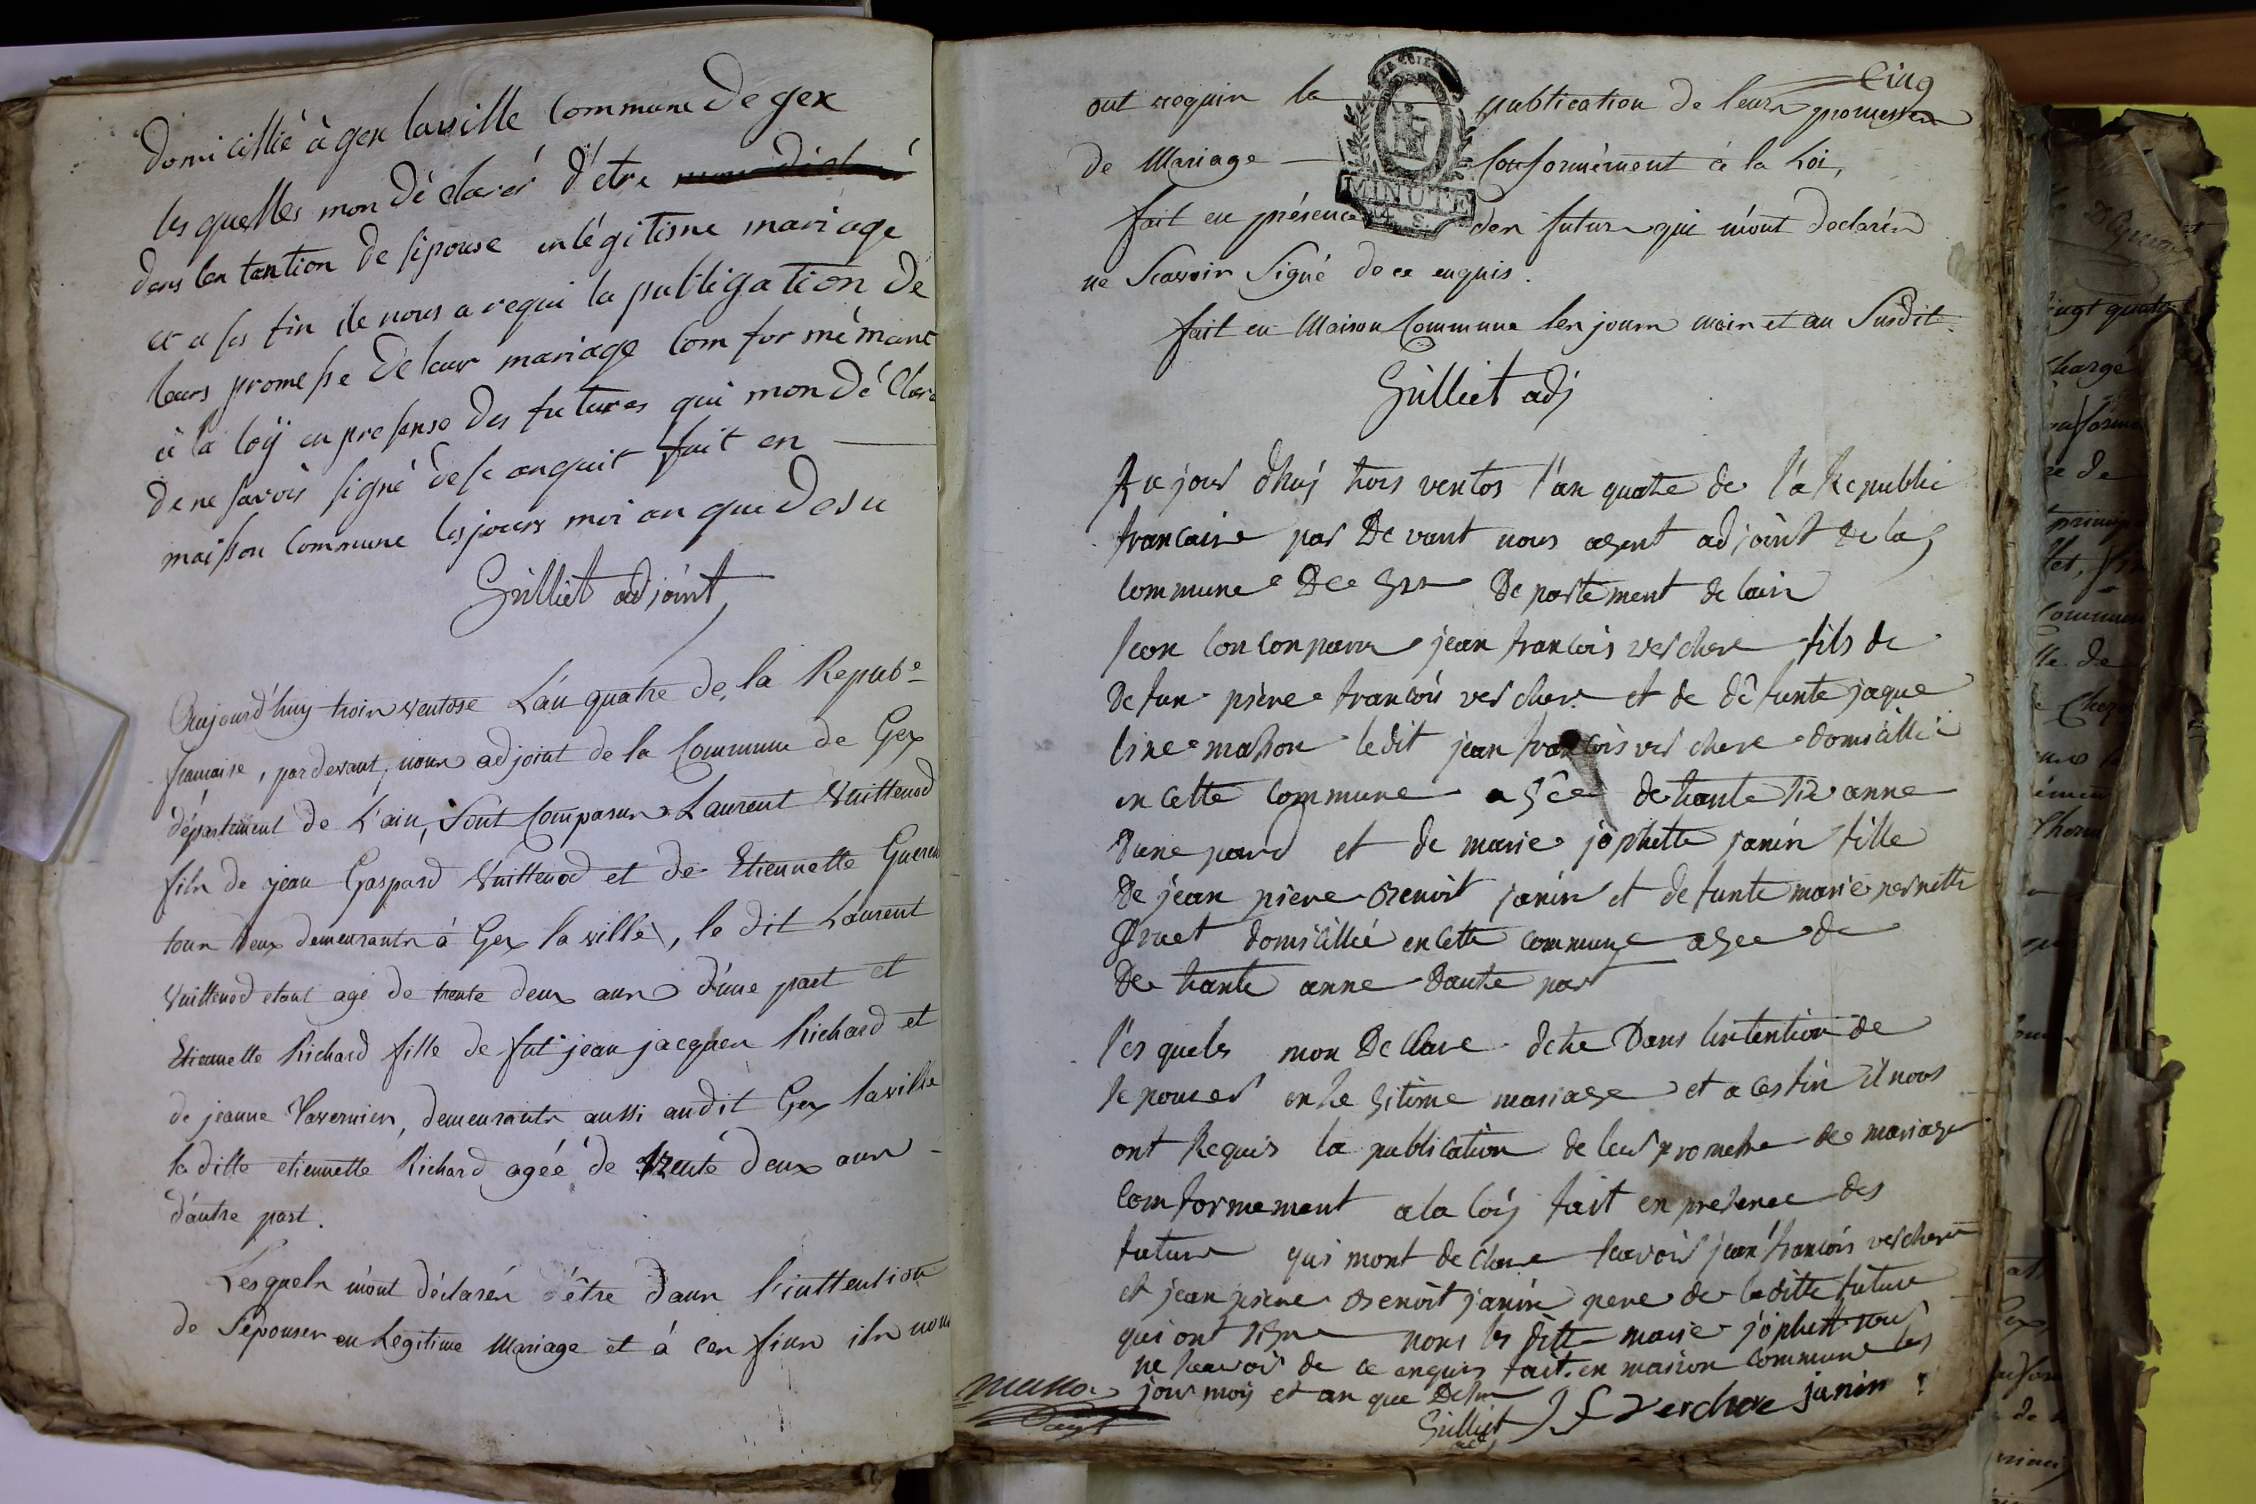 domicillié à gex laville Commune De gex
les quelles mon Dé clarés d'étre
dens len tention De sépouse en légitisme mariage
et a ses fin ile nous a requi la publigation De
leurs promesse De leur mariage Com for mé mant
à la loÿ en presense Des futures qui mon Dé Clare
De ne savoir signé De se anquit fait en
maisson Commune les jours moi an que Desu
Gilliet adjoint
Aujourd'huy trois ventose L'an quatre de la Repube
francaise, pardevant, nous adjoint de la Commune de Gex
département de L'ain, Sont Comparus Laurent Vuittenod
fils de jean Gaspard Vuittenod et de Etiennette
tous deux demeurants à Gex la ville, le dit Laurent
Vuittenod etant agé de trente deux ans d'une part et
Etiennette Richard fille de fut jean jacques Richard et
de jeanne Tavernier, demeurants aussi audit Gex laville
la ditte etiennette Richard agéé de trente deux ans
d'autre part.
Lesquels m'ont déclarés d'être dans l'inttention
de S'épouser en Légitime Mariage et à ces fins ils nous
Cinq
ont requis la publication de leurs promesses
de Mariage Conformément à la Loi,
MINUTE
fait en présence des futurs qui m'ont declarés
ne Scavoir Signé de ce enquis.
fait en Maison Commune les jours mois et an Susdit.
Gilliet adj
Au jour dhuÿ trois ventos l'an quatre de l'a Republi
francaire par De vant nous agent adjoint De la
Commune De Gex De partement de lain
son Conparus jean francois verchere fils de
De fun piere francois verchere et de dé funte jaque
line masson ledit jean francois ver chere domicillié
en cette commune agée de trante anne
Dune pard et de marie jophette janin fille
De jean piere Benoit janin et de funte marie pernette
domicillié en cette commune agee de
De trante anne dautre par
l'es quels mon De Clare detre Dans lintention de
se pouser en le gitime mariage et a ces fin il nous
ont Requis la publication de leur promesse de mariage
Comformemant a la loÿ fait en presence des
futurs qui mont de Clare savoir jean francois verchere
et jean piere Benoit janin pere de laditte future
qui ont signe nons la ditte marie jophett
ne savoir de ce anquis fait en maison commune les
jour moÿ et an que Desu
Gilliet J f verchere janin